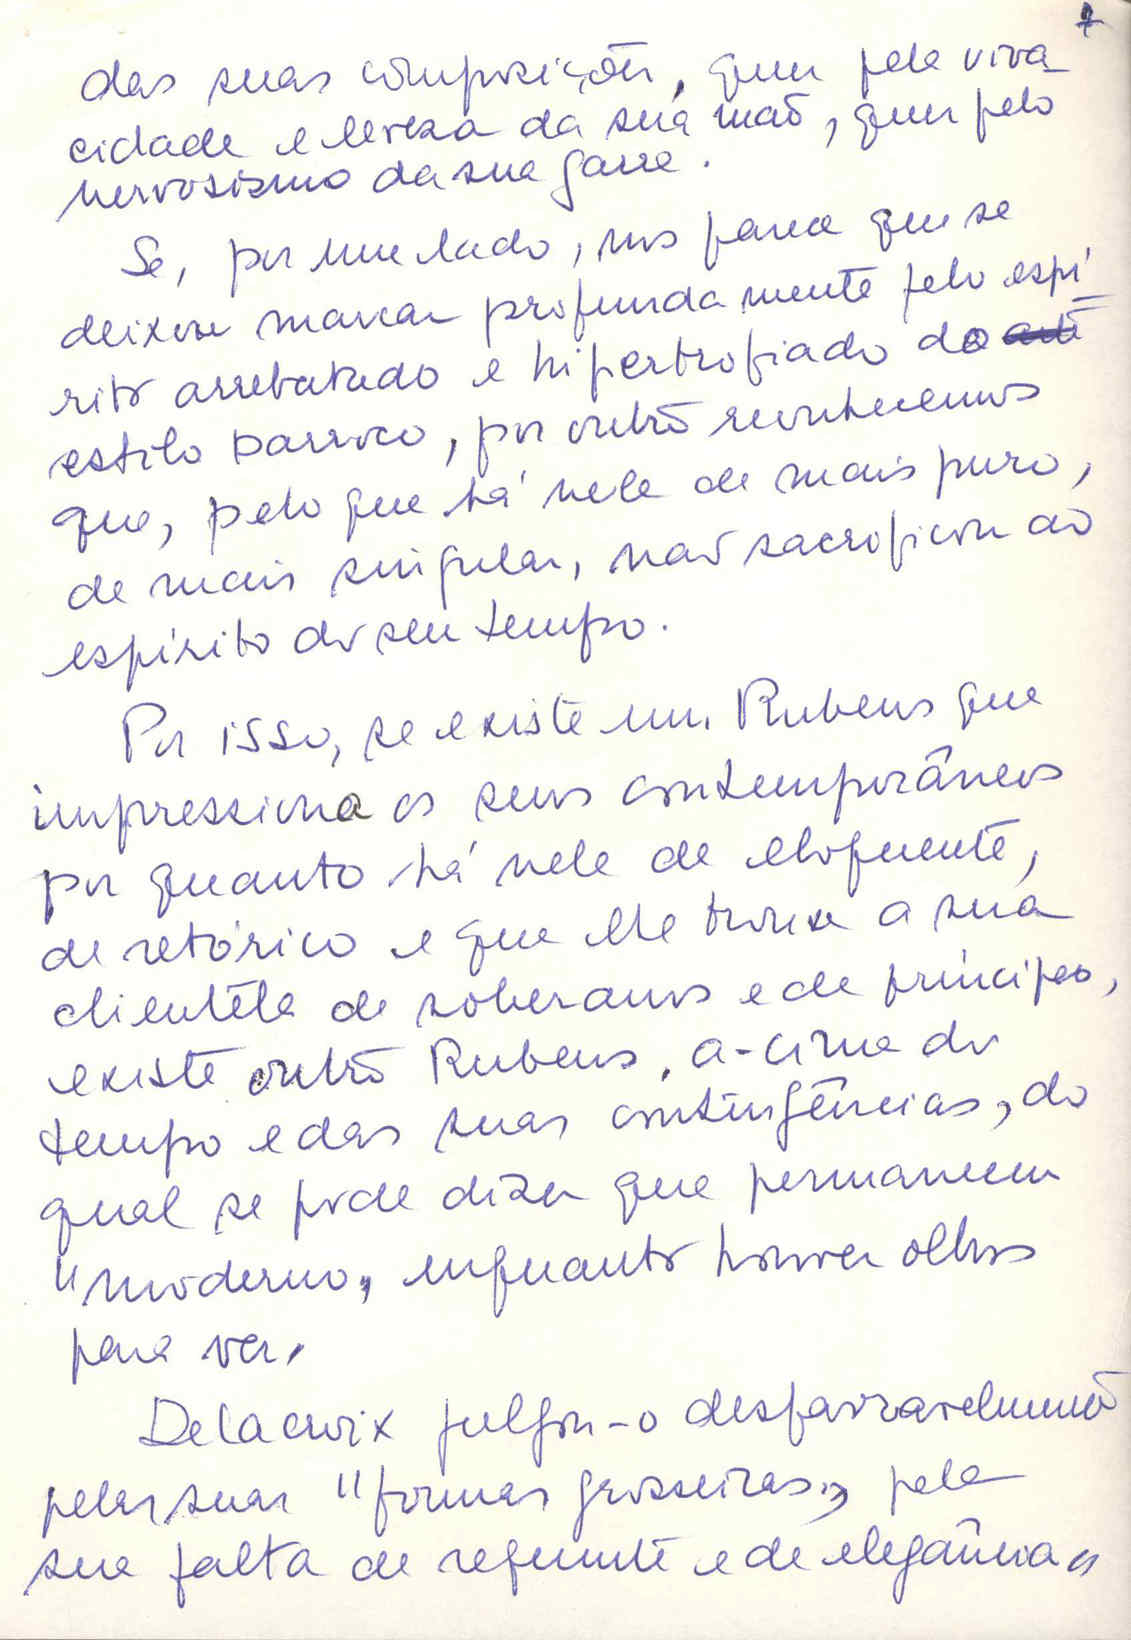 7
das suas composições, quer pela viva-
cidade e leveza da sua mão, quer pelo
nervosismo da sua garra.
Se, por um lado, nos parece que se
deixou marcar profundamente pelo espí-
rito arrebatado e hipertrofiado do arte
estilo barroco, por outro reconhecemos
que, pelo que há nele de mais puro,
de mais singular, não sacrificou ao
espírito do seu tempo.
Por isso, se existe um Rubens que
impressiona os seus contemporâneos
por quanto há nele de eloquente,
de retórico e que lhe trouxe a sua
clientela de soberanos e de príncipes,
existe outro Rubens, a-cima do
tempo e das suas contingências, do
qual se pode dizer que permanecerá
"moderno" enquanto houver olhos
para ver.
Delacroix julgou-o desfavoravelmente
pelas suas "formas grosseiras", pela
sua falta de requinte e de elegância"